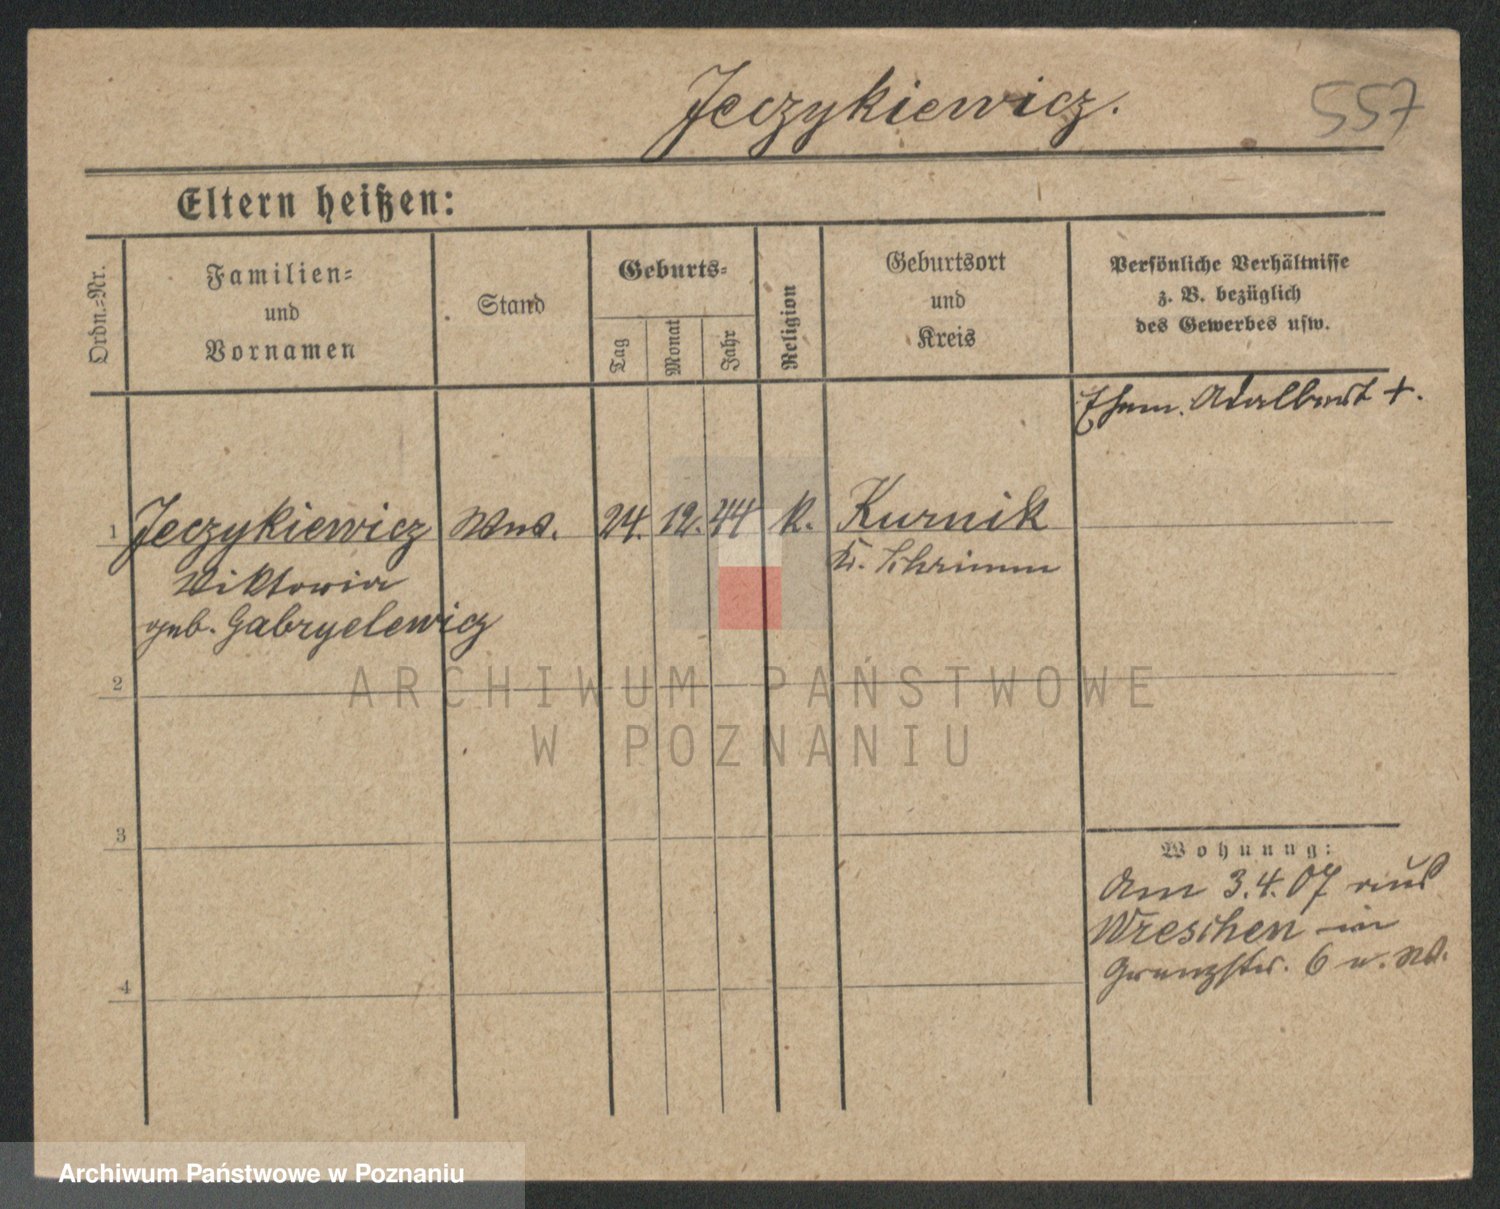 Jeczykiewicz.
557
Eltern heißen:
Ordn.-Nr.
Familien-
und
Vornamen
Stand
Geburts-
Tag
Monat
Jahr
Religion
Geburtsort
und
Kreis
Persönliche Verhältnisse
z. B. bezüglich
des Gewerbes usw.
Ehem. Adalbert +.
1 Jeczykiewicz Wwe. 24. 12. 44 k. Kurnik
Viktoria
Kr. Schrimm
geb. Gabryelewicz
2
ARCHIWUM PAŃSTWOWE
W POZNANIU
3
Wohnung:
Am 3.4.07 aus
Wreschen in
Grenzstr. 6
4
Archiwum Państwowe w Poznaniu